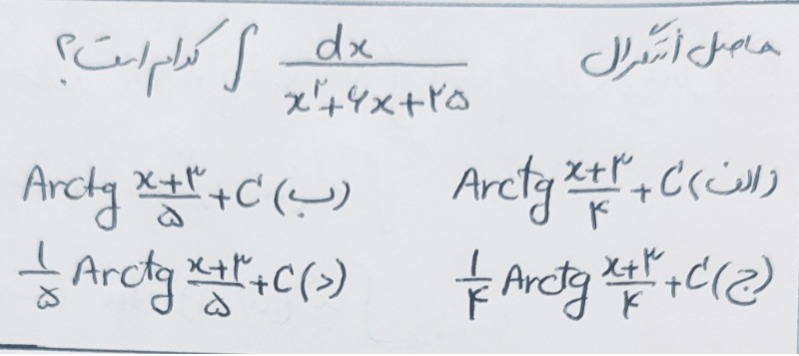 حاصل انتگرال ∫ dx / (x²+۶x+۲۵) کدام است؟
الف) Arctg (x+۳)/۴ + C ب) Arctg (x+۳)/۵ + C
ج) ۱/۴ Arctg (x+۳)/۴ + C د) ۱/۵ Arctg (x+۳)/۵ + C